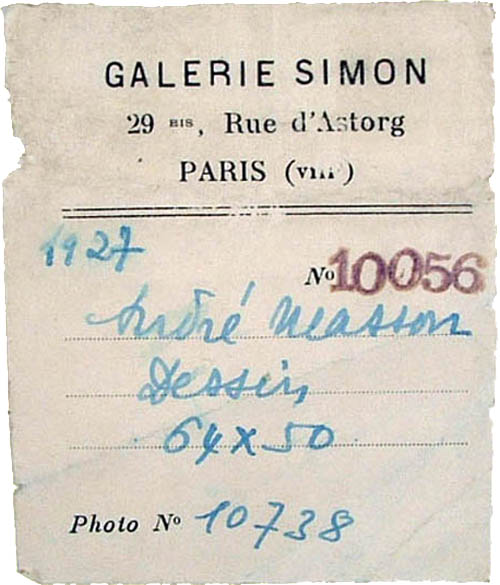 GALERIE SIMON
29 BIS, Rue d'Astorg
PARIS (VIIIᵉ)
1927
Nº 10056
André Masson
Dessin
64 x 50
Photo Nº 10738